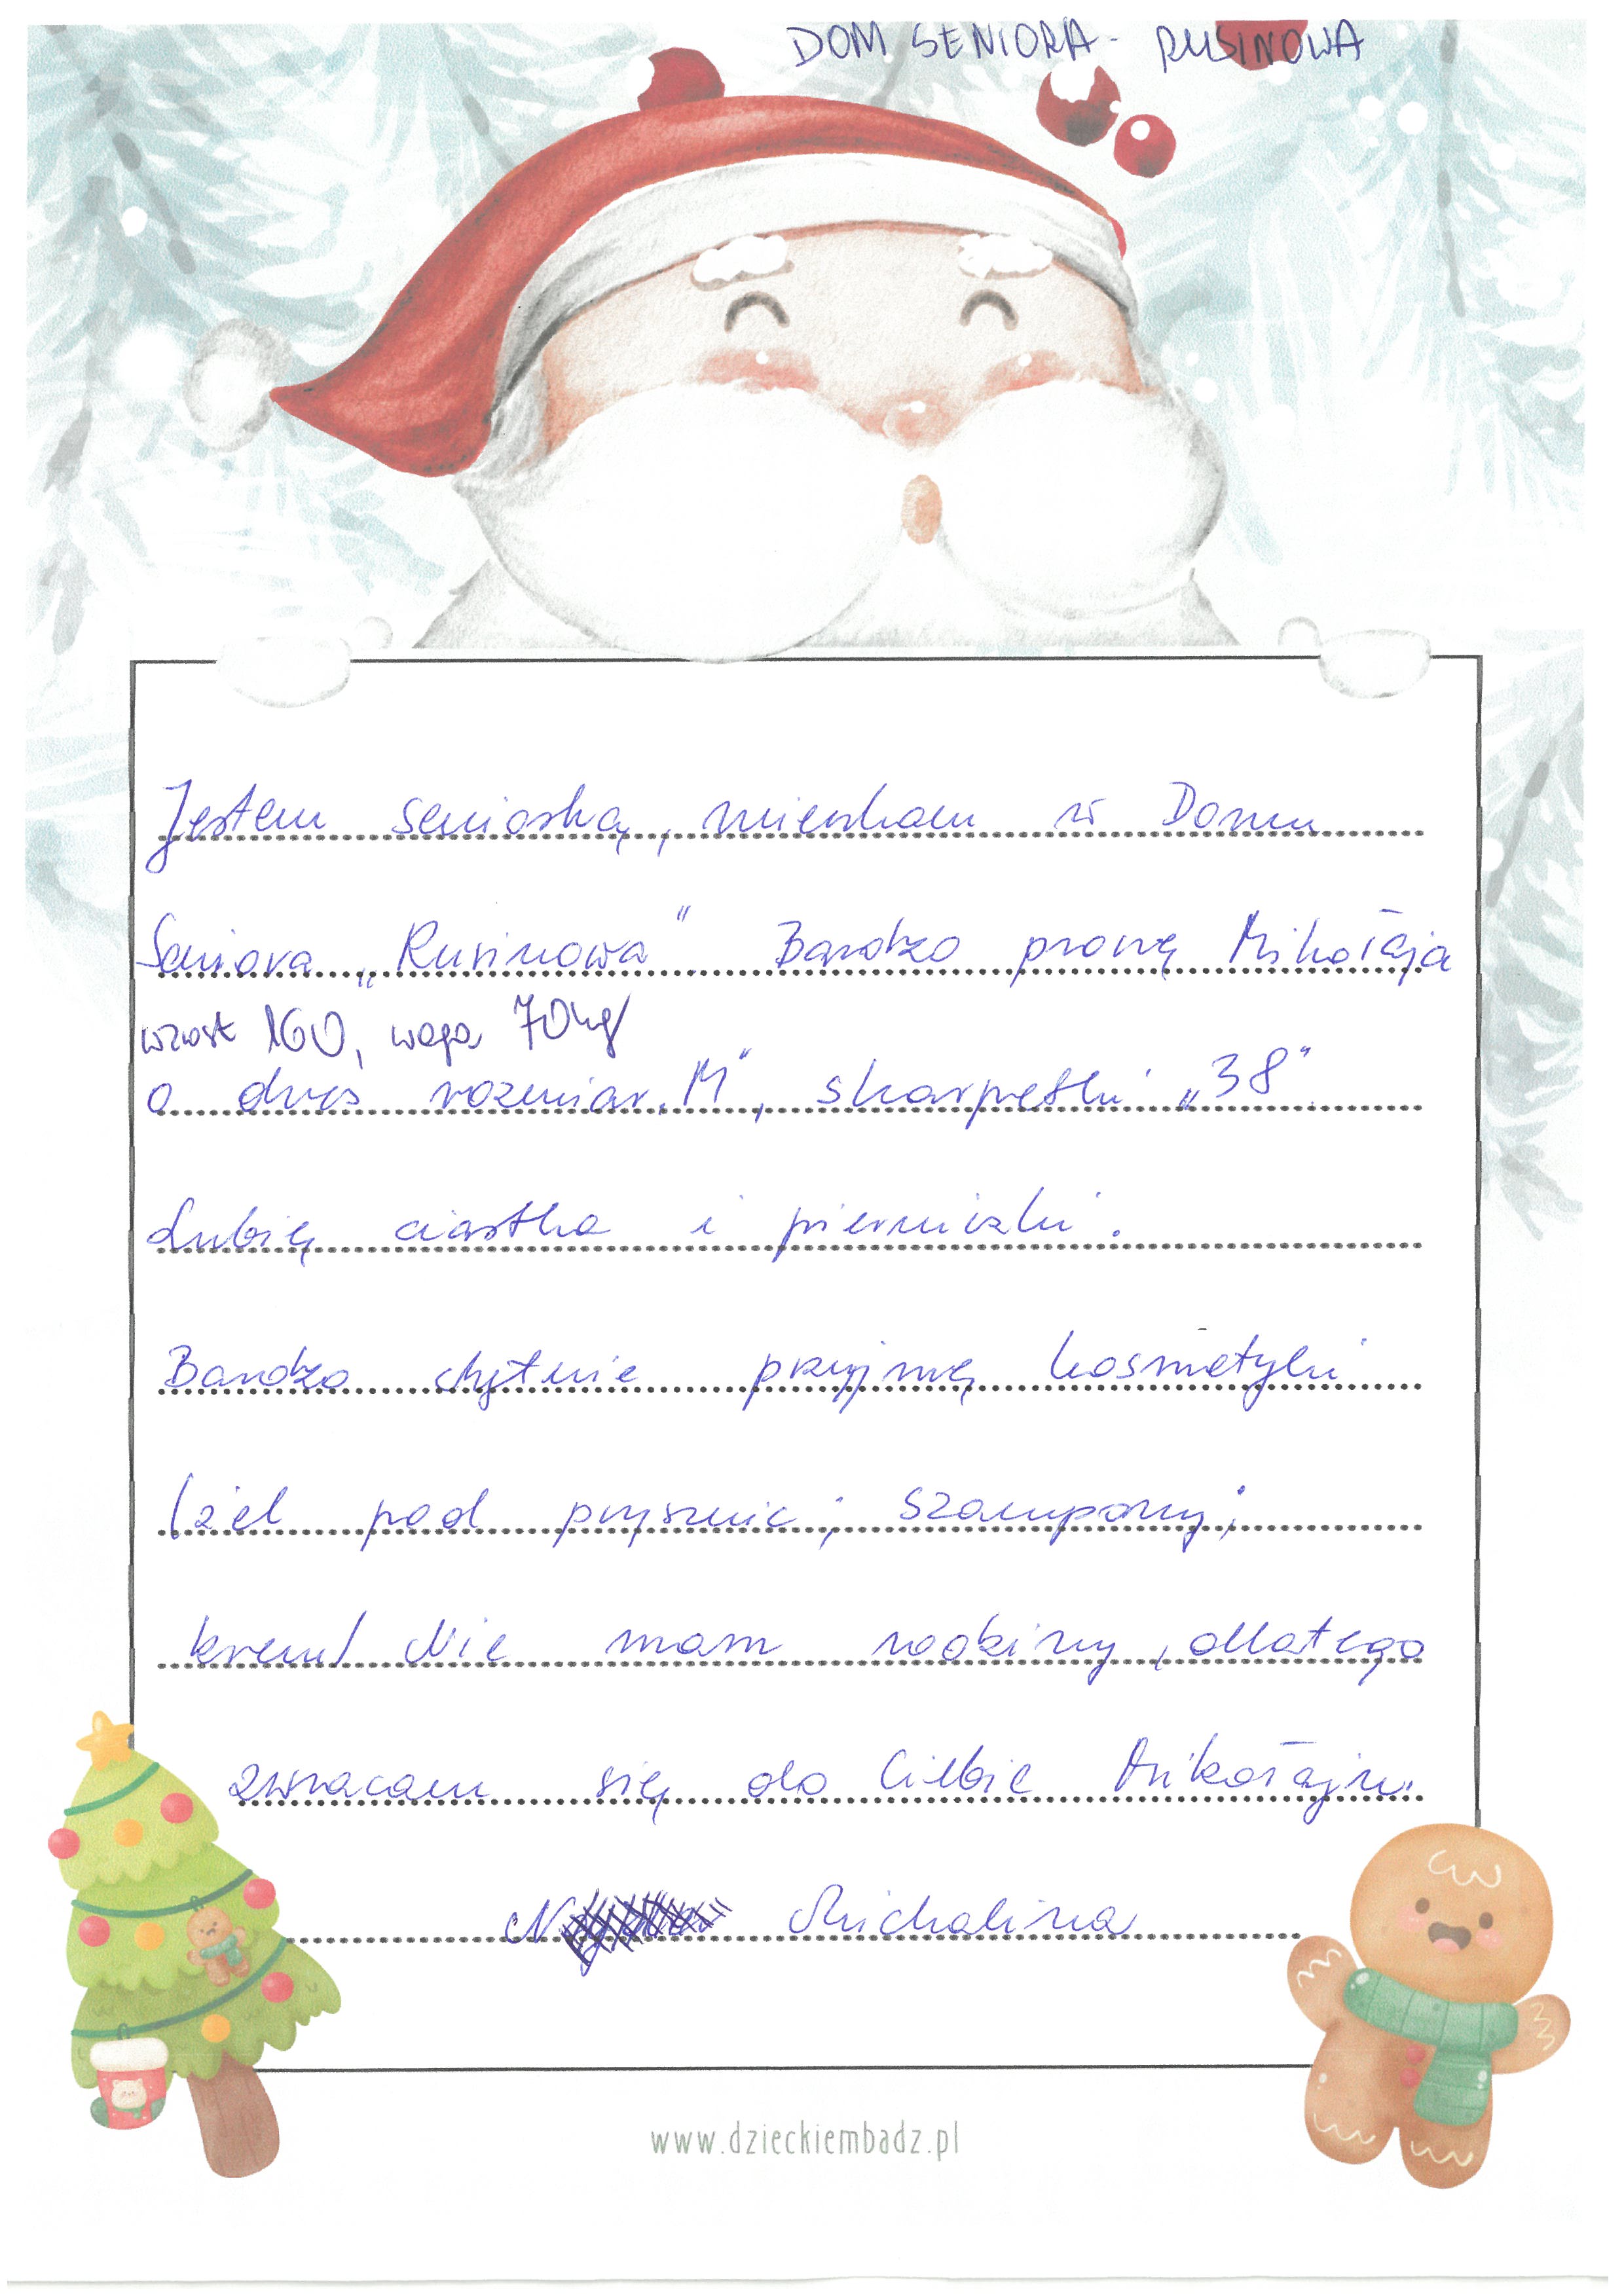 DOM SENIORA - RUSINOWA
Jestem seniorką, mieszkam w Domu
Seniora „Rusinowa" Bardzo proszę Mikołaja
wzrost 160, waga 70kg
o dres rozmiar „M", skarpetki „38"
Lubię ciastka i pierniczki.
Bardzo chętnie przyjmę kosmetyki
(żel pod prysznic; szampony;
krem/ Nie mam rodziny, dlatego
zwracam się do Ciebie Mikołaju.
Michalina
www.dzieckiembadz.pl